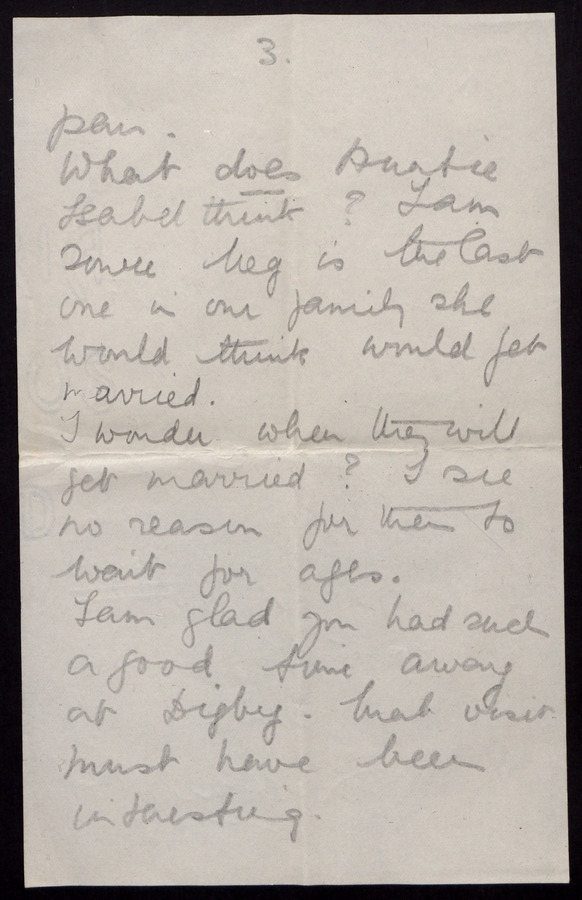 3.
pen.
What does Auntie
Isabel think ? I am
sure Meg is the last
one in our family she
would think would get
married.
I wonder when they will
get married ? I see
no reason for them to
wait for ages.
I am glad you had such
a good time away
at Digby. that visit
must have been
interesting.